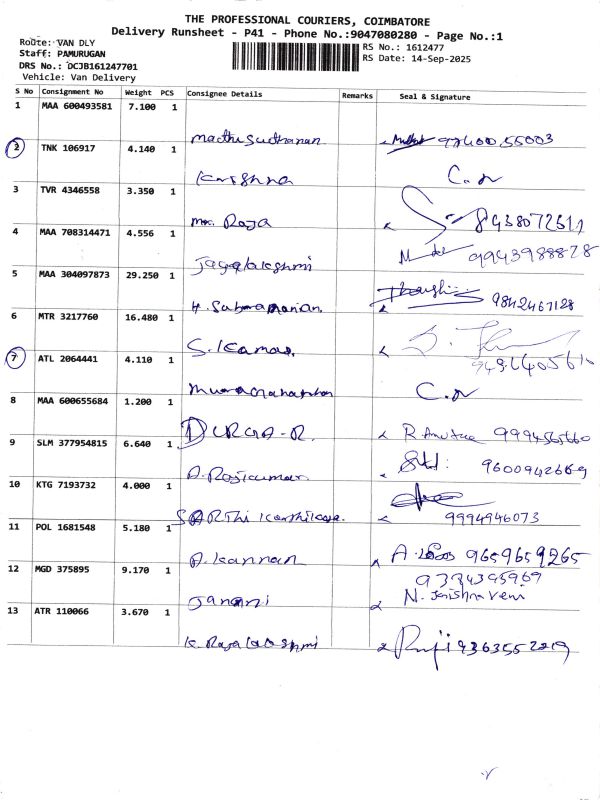 THE PROFESSIONAL COURIERS, COIMBATORE
Delivery Runsheet - P41 - Phone No.:9047080280 - Page No.:1
Route: VAN DLY
RS No.: 1612477
Staff: PAMURUGAN
RS Date: 14-Sep-2025
DRS No.: DCJB161247701
Vehicle: Van Delivery
S No Consignment No Weight PCS Consignee Details Remarks Seal & Signature
1 MAA 600493581 7.100 1
Madhusudhanan
2 TNK 106917 4.140 1
Krishna
3 TVR 4346558 3.350 1
Raja
4 MAA 708314471 4.556 1
Jayalakshmi 9943988828
5 MAA 304097873 29.250 1
H. Subramanian. 9842467128
6 MTR 3217760 16.480 1
S. Kumar.
7 ATL 2064441 4.110 1
8 MAA 600655684 1.200 1
DURGA-R.
9 SLM 377954815 6.640 1
9600942669
A. Rajkumar.
10 KTG 7193732 4.000 1
SARTHI 9994946073
11 POL 1681548 5.180 1
A. Kannan 9659659265
12 MGD 375895 9.170 1
Janani
13 ATR 110066 3.670 1
K. Rajalakshmi